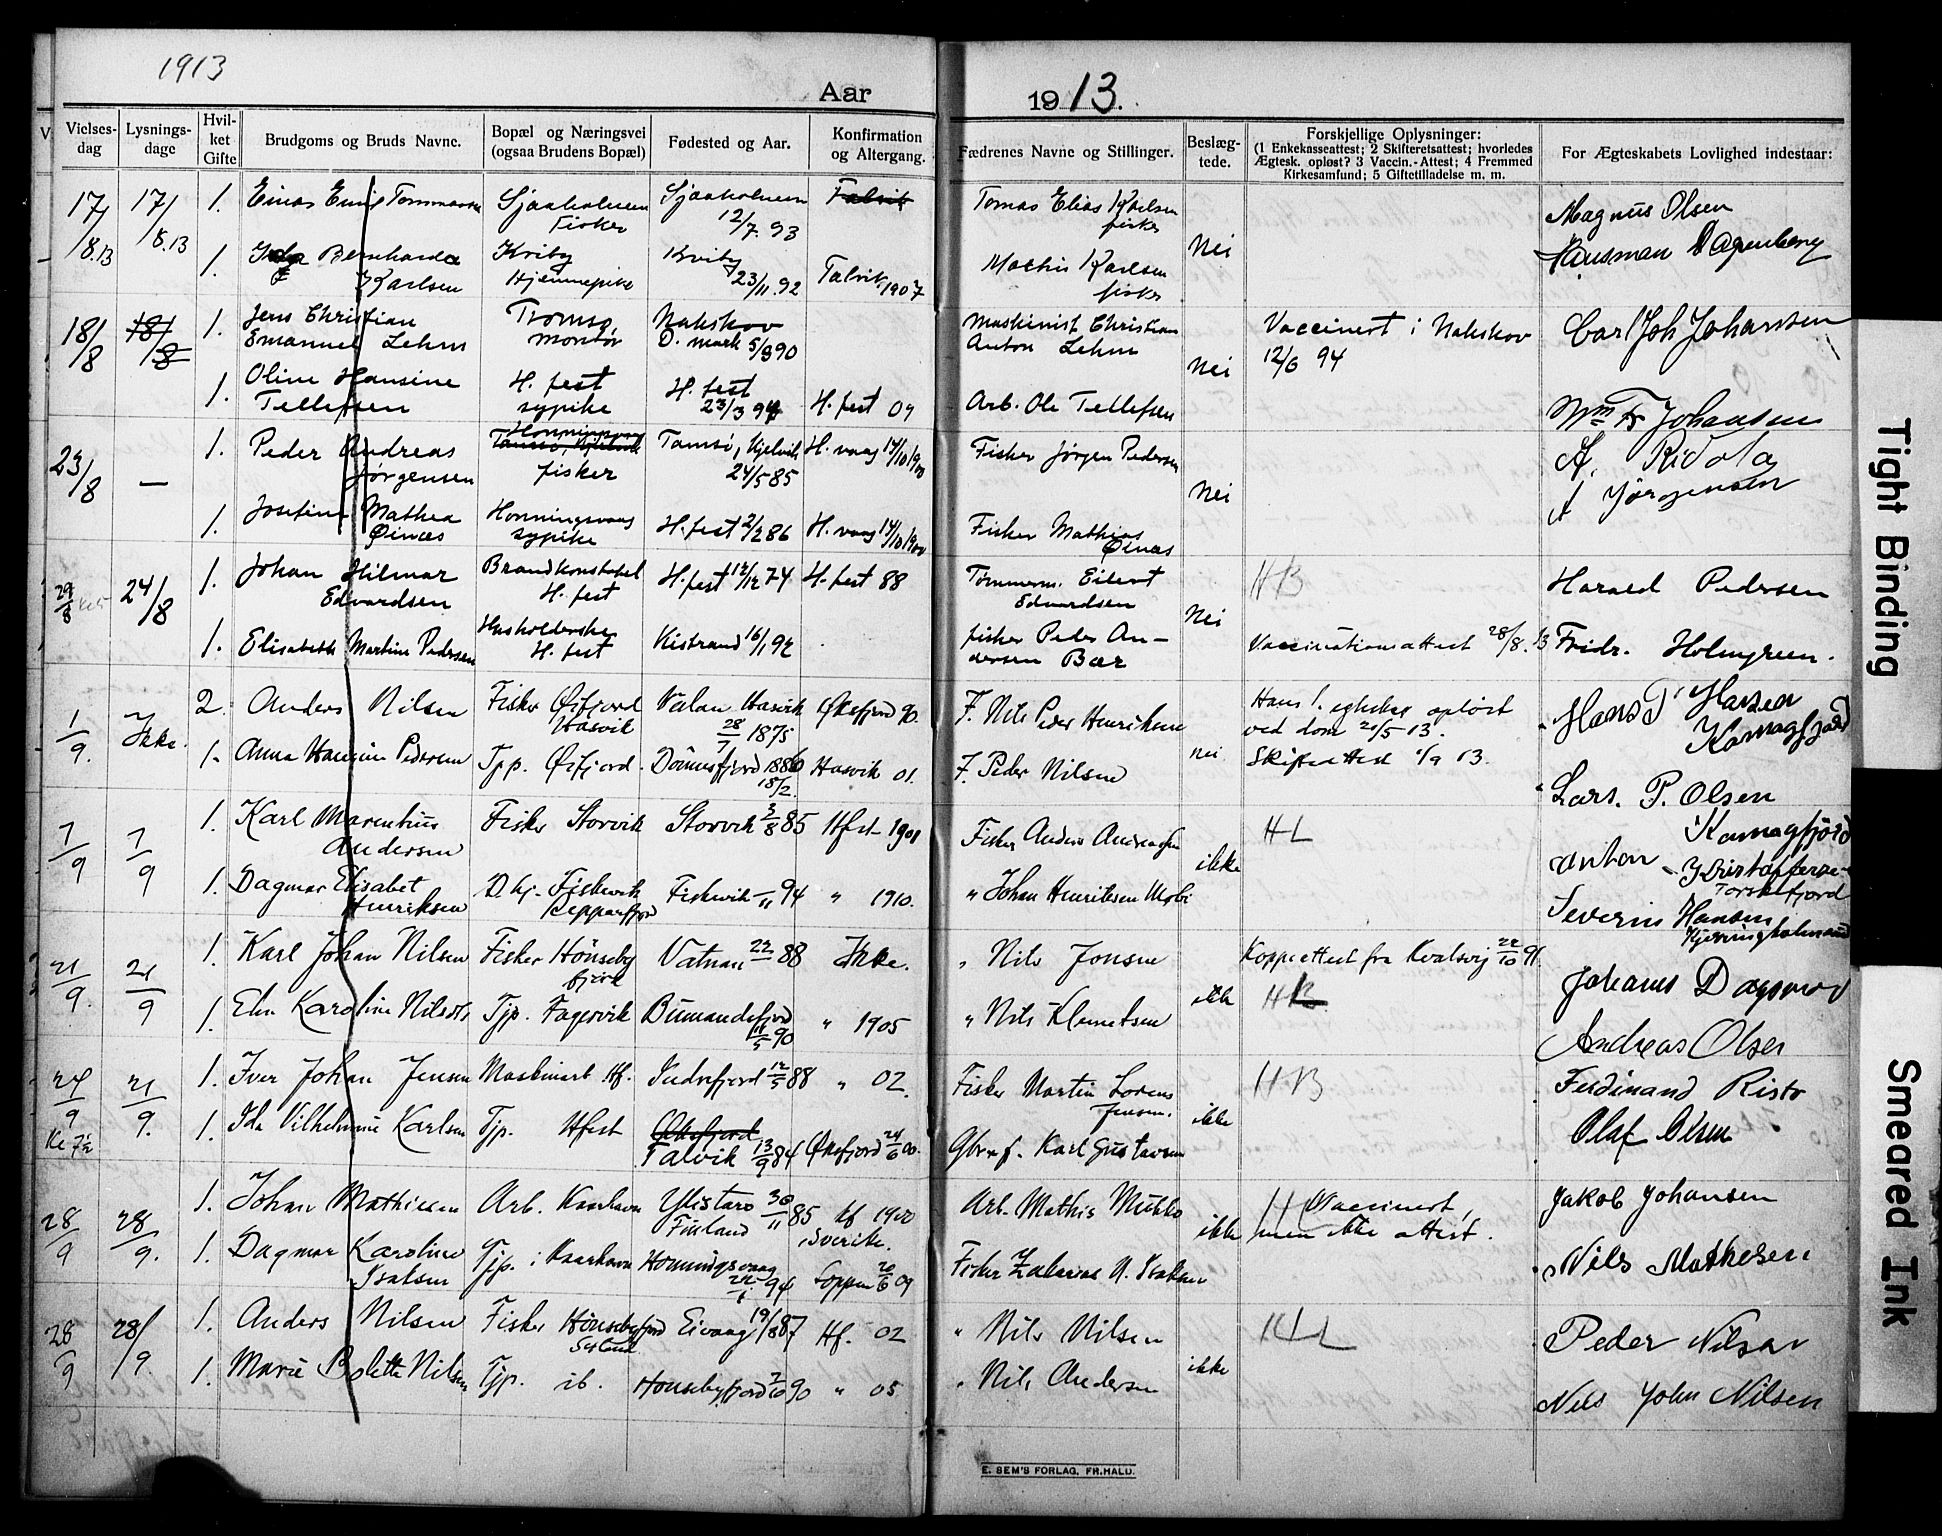 1913
Aar
1913.
Vielses-
dag
Lysnings-
dage
Hvil-
ket
Gifte
Brudgoms og Bruds Navne.
Bopæl og Næringsvei
(ogsaa Brudens Bopæl)
Fødested og Aar.
Konfirmation
og Altergang.
Fædrenes Navne og Stillinger.
Beslæg-
tede.
Forskjellige Oplysninger:
(1 Enkekasseattest; 2 Skifteretsattest; hvorledes
Ægtesk. opløst? 3 Vaccin.-Attest; 4 Fremmed
Kirkesamfund; 5 Giftetilladelse m. m.
For Ægteskabets Lovlighed indestaar:
17/8.13 17/8.13 1. Einar Tommasen Fisker 12/7. 93 Talvik Tomas Elias Karlsen
fisker
Nei
Magnus Olsen
1. Bernharda Kviby Kviby
Karlsen Hjemmepike 23/11.92 Talvik 1907 Karlsen
fisker
18/8 18/8 1. Jens Christian Tromsø, Nakskov Maskinist Christian
Emanuel Lehm montør D.mark 5/8 90 Anton Lehm
Nei
Vaccinert i Nakskov
12/6 94
Carl Joh Johansen
1. Oline Hansine H.fest H.fest
Tellefsen sypike 23/3 94 H.fest 09 Arb. Ole Tellefsen
Johansen
23/8 — 1. Peder Andreas Honningsvaag Tamsø, Kjelvik H.vaag Fisker Jørgen Pedersen
Jørgensen fisker 24/5 85
Nei
A. Ridola
A Jørgensen
1. Josefine Mathea Honningsvaag H.fest 2/2 86 H.vaag Fisker Mathias
Øinæs sypike Øinæs
29/8 24/8 1. Johan Hilmar Brandkonstabel H.fest 12/12 74 H.fest 88 Tømmerm. Eilert
Edvardsen H.fest Edvardsen
Nei
HB
Harald Pedersen
1. Elisabeth Martine Pedersen Husholderske Kistrand 16/1 92 fisker Peder An-
H.fest dersen Bær
Vaccinationsattest 28/8.13 Fridr. Holmgreen.
1/9. Ikke. 2. Anders Nilsen Fisker Øifjord Hasvik Øksfjord 90. F. Nils Peder Henriksen
Hasvik 28/7 1875
nei
Hans 1. egteskap opløst
ved dom 20/5 13.
Hans P Hansen
Komagfjord
1. Anna Hansine Pedersen Tjp. Øifjord Dønnesfjord 1886 Hasvik 01. F. Peder Nilsen
18/2.
Skifteattest 1/9 13.
Lars. P. Olsen
Komagfjord
7/9 7/9 1. Karl Marenhius Fisker Storvik Storvik 3/8 85 Hfest 1901 Fisker Anders Andreassen
Andersen
ikke
HL
Anton Kristoffersen
Torskefjord
1. Dagmar Elisabet Fiskevik Fiskevik 94 " 1910. " Johan Henriksen
Henriksen Repparfjord
Severin Hansen
21/9. 21/9 1. Karl Johan Nilsen Fisker Hønseby Vatnan 88 Ikke. " Nils Jonsen
fjord
ikke
Koppeattest fra Kvalsvig 22/10 91.
Johanes Dagsvold
1. Elen Karoline Nilsdtr Tjp. Fagervik Bumandsfjord " 1905 " Nils Klemetsen
11/5 90
HL
Andreas Olsen
27/9 21/9. 1. Iver Johan Jensen Maskinarb. Hf. Indrefjord 12/5 88 " 02. Fisker Martin Lorens
Jensen.
ikke
HB
Ferdinand Risto
1. Ida Vilhelmine Karlsen Tjp. Hfest Øksfjord
Talvik 13/9 84 Øksfjord 24/6 00. Gbr. f. Karl Gustavsen
Olaf Olsen
28/9 28/9. 1. Johan Mathissen Arb. Kaarhavn Ylistaro 30/11 85 Hf 1900 Arb. Mathis
Finland i Sverike.
ikke
HL Vaccinert,
men ikke attest.
Jakob Johansen
1. Dagmar Karoline Tjp. i Kaarhavn Honningsvaag
Isaksen 94 Loppen 20/6 09 Fisker Zakarias N. Isaksen
Nils Mathesen
28/9 28/9. 1. Anders Nilsen Fisker Hønsebyfjord Eivaag 19/8 87 Hf. 02 " Nils Nilsen
ikke
HL
Peder Nilsen
1. Marie Bolette Nilsen Tjp. ib. Hønsebyfjord 2/10 90 " 05. " Nils Andersen
Nils John Nilsen
E. SEM'S FORLAG, FR.HALD.
Tight Binding
Smeared Ink